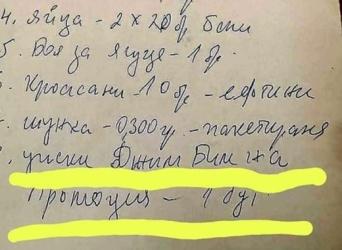 4. яйца - 2 х 20 бр бели
5. Боя за яйце - 1 бр.
Кроасани - 10 бр - евтини
шунка - 0,300 гр. - пакетирана
уиски Джим Бим на
Промоция - 1 бут